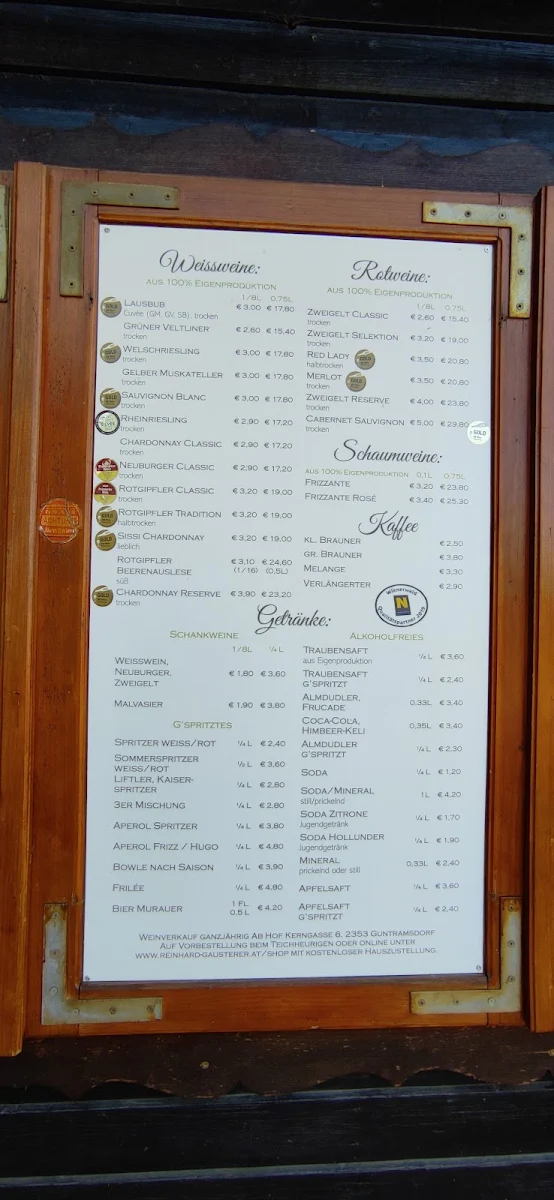 Weissweine:
aus 100% Eigenproduktion
1/8L 0,75L
Lausbub € 3,00 € 17,80
Cuvée (GM, GV, SB), trocken
Grüner Veltliner € 2,60 € 15,40
trocken
Welschriesling € 3,00 € 17,80
trocken
Gelber Muskateller € 3,00 € 17,80
trocken
Sauvignon Blanc € 3,00 € 17,80
trocken
Rheinriesling € 2,90 € 17,20
trocken
Chardonnay Classic € 2,90 € 17,20
trocken
Neuburger Classic € 2,90 € 17,20
trocken
Rotgipfler Classic € 3,20 € 19,00
trocken
Rotgipfler Tradition € 3,20 € 19,00
halbtrocken
Sissi Chardonnay € 3,20 € 19,00
lieblich
Rotgipfler € 3,10 € 24,60
Beerenauslese (1/16) (0,5L)
süß
Chardonnay Reserve € 3,90 € 23,20
trocken
Rotweine:
aus 100% Eigenproduktion
1/8L 0,75L
Zweigelt Classic € 2,60 € 15,40
trocken
Zweigelt Selektion € 3,20 € 19,00
trocken
Red Lady € 3,50 € 20,80
halbtrocken
Merlot € 3,50 € 20,80
trocken
Zweigelt Reserve € 4,00 € 23,80
trocken
Cabernet Sauvignon € 5,00 € 29,80
trocken
GOLD
Schaumweine:
aus 100% Eigenproduktion 0,1L 0,75L
Frizzante € 3,20 € 23,80
Frizzante Rosé € 3,40 € 25,30
Kaffee
kl. Brauner € 2,50
gr. Brauner € 3,80
Melange € 3,30
Verlängerter € 2,90
Wienerwald
N
Qualitätspartner 2019
Getränke:
Schankweine
1/8L ¼ L
Weisswein,
Neuburger, € 1,80 € 3,60
Zweigelt
Malvasier € 1,90 € 3,80
G'spritztes
Spritzer weiss/rot ¼ L € 2,40
Sommerspritzer ½ L € 3,60
weiss/rot
Liftler, Kaiser- ¼ L € 2,80
spritzer
3er Mischung ¼ L € 2,80
Aperol Spritzer ¼ L € 3,80
Aperol Frizz / Hugo ¼ L € 4,80
Bowle nach Saison ¼ L € 3,90
Frilée ¼ L € 4,80
Bier Murauer 1 Fl. € 4,20
0,5 L
Alkoholfreies
Traubensaft ¼ L € 3,60
aus Eigenproduktion
Traubensaft ¼ L € 2,40
g'spritzt
Almdudler, 0,33L € 3,40
Frucade
Coca-Cola, 0,35L € 3,40
Himbeer-Keli
Almdudler ¼ L € 2,30
g'spritzt
Soda ¼ L € 1,20
Soda/Mineral 1L € 4,20
still/prickelnd
Soda Zitrone ¼ L € 1,70
Jugendgetränk
Soda Hollunder ¼ L € 1,90
Jugendgetränk
Mineral 0,33L € 2,40
prickelnd oder still
Apfelsaft ¼ L € 3,60
Apfelsaft ¼ L € 2,40
g'spritzt
Weinverkauf ganzjährig Ab Hof Kerngasse 6, 2353 Guntramsdorf
Auf Vorbestellung beim Teichheurigen oder online unter
www.reinhard-gausterer.at/shop mit kostenloser Hauszustellung.